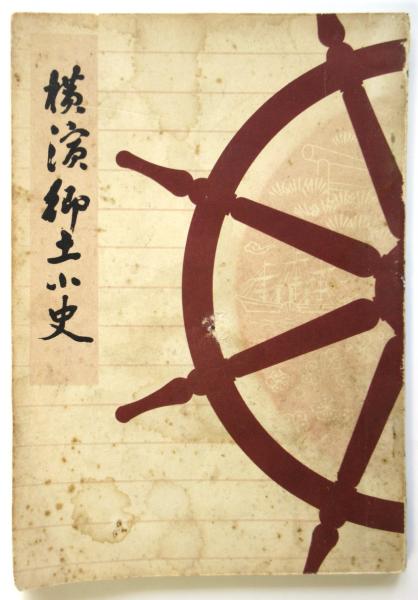 横濱郷土小史